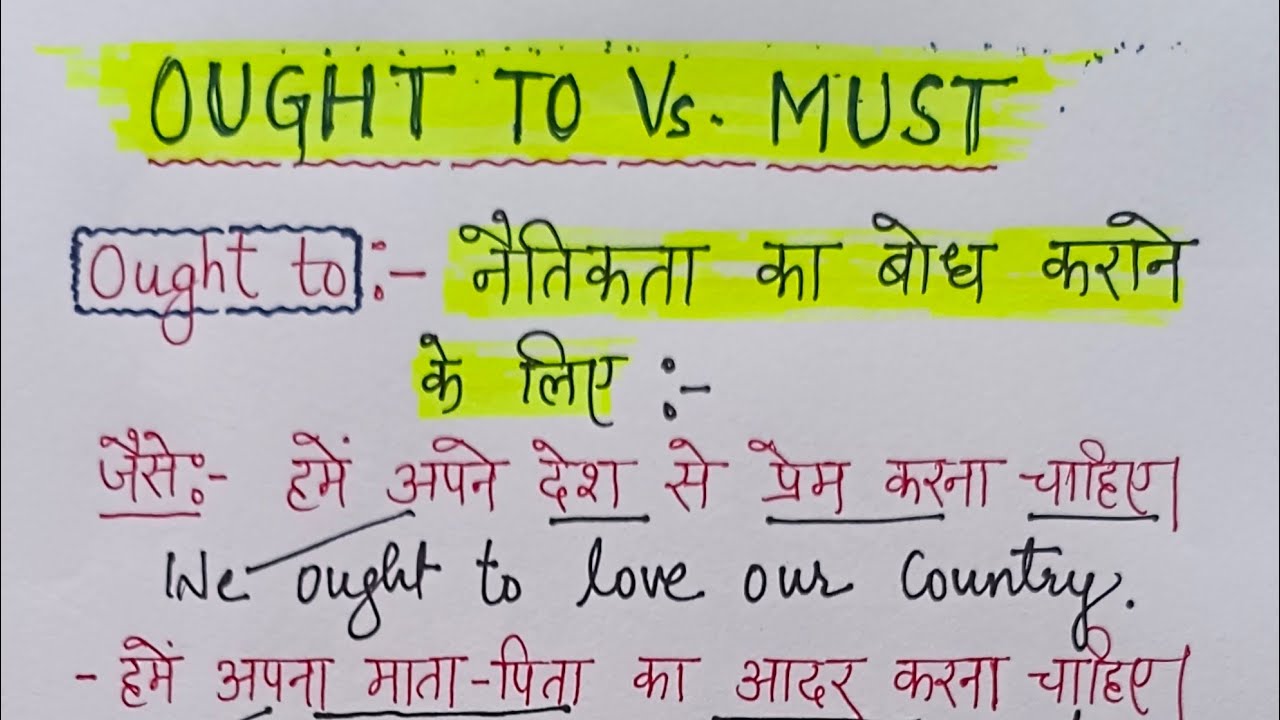 OUGHT TO Vs. MUST
Ought to :- नैतिकता का बोध कराने
के लिए :-
जैसे:- हमें अपने देश से प्रेम करना चाहिए।
We ought to love our Country.
- हमें अपना माता-पिता का आदर करना चाहिए।